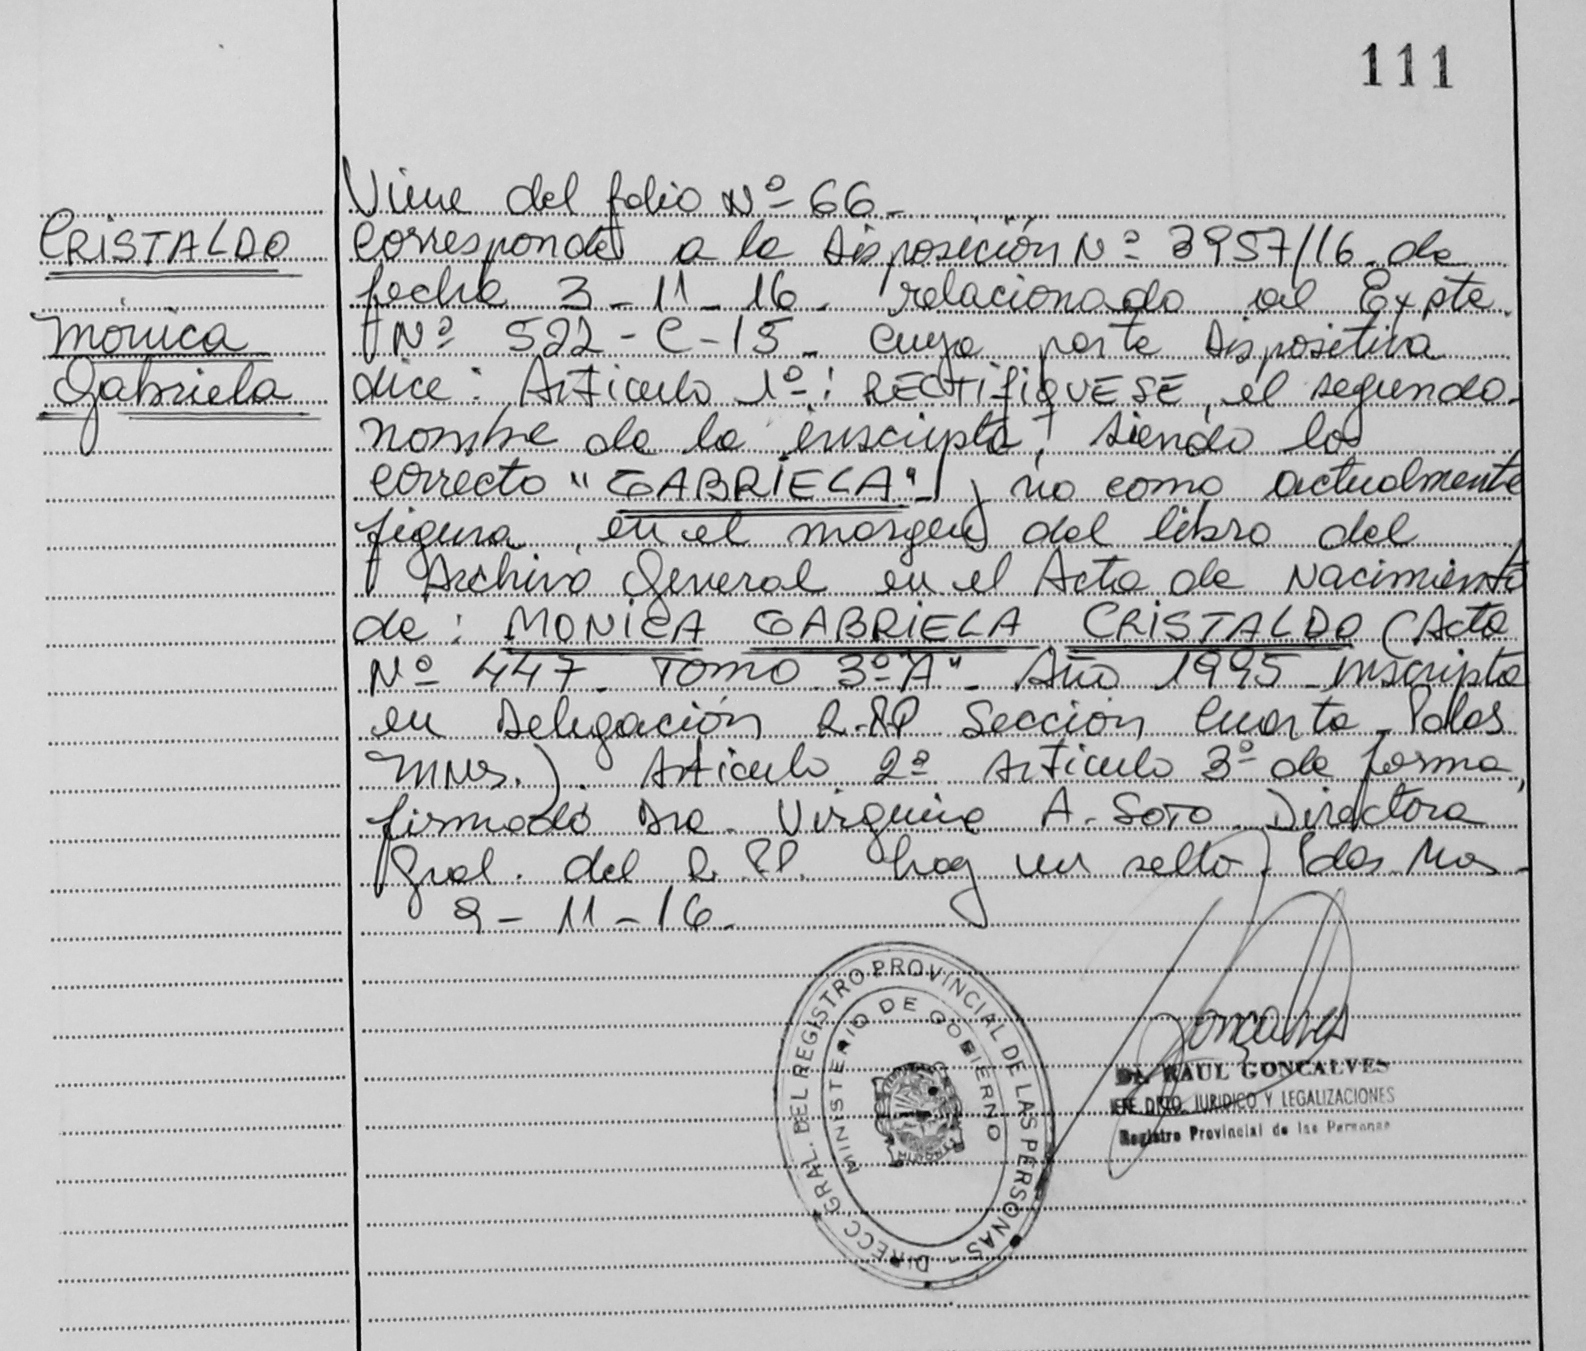 111
Viene del folio Nº 66-
CRISTALDO
Corresponde a la Disposición Nº 3957/16 de
fecha 3-11-16. relacionado al Expte.
Mónica
Nº 522-C-15. cuya parte dispositiva
Gabriela
dice: Articulo 1º: RECTIFIQUESE, el segundo
nombre de la inscripta, siendo lo
correcto "GABRIELA" y no como actualmente
figura, en el margen del libro del
Archivo General en el Acta de Nacimiento
de: MONICA GABRIELA CRISTALDO (Acta
Nº 447. Tomo 3º "A". Año 1995 inscripta
en Delegación R.PP Sección Cuarta. Pdas
Mnes.). Articulo 2º Articulo 3º de forma,
firmado Dra. Virginia A. Soto. Directora
Gral. del R.PP. hay un sello. Pdas Mnes-
-11-16.
DIRECC. GRAL. DEL REGISTRO PROVINCIAL DE LAS PERSONAS -
MINISTERIO DE GOBIERNO
Goncalves
Dr. RAUL GONCALVES
JEFE DPTO. JURIDICO Y LEGALIZACIONES
Registro Provincial de las Personas